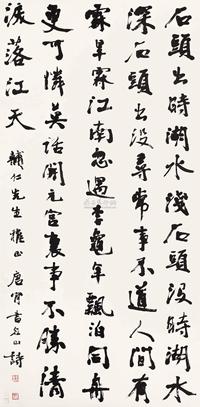 石頭出時湖水淺石頭沒時湖水
深石頭出沒尋常事不道人間有
霖旱霖江南忽遇李龜年飄泊同舟
更可憐莫話開元宮裏事不勝清
淚落江天
輔仁先生雅正 唐肯書名山詩